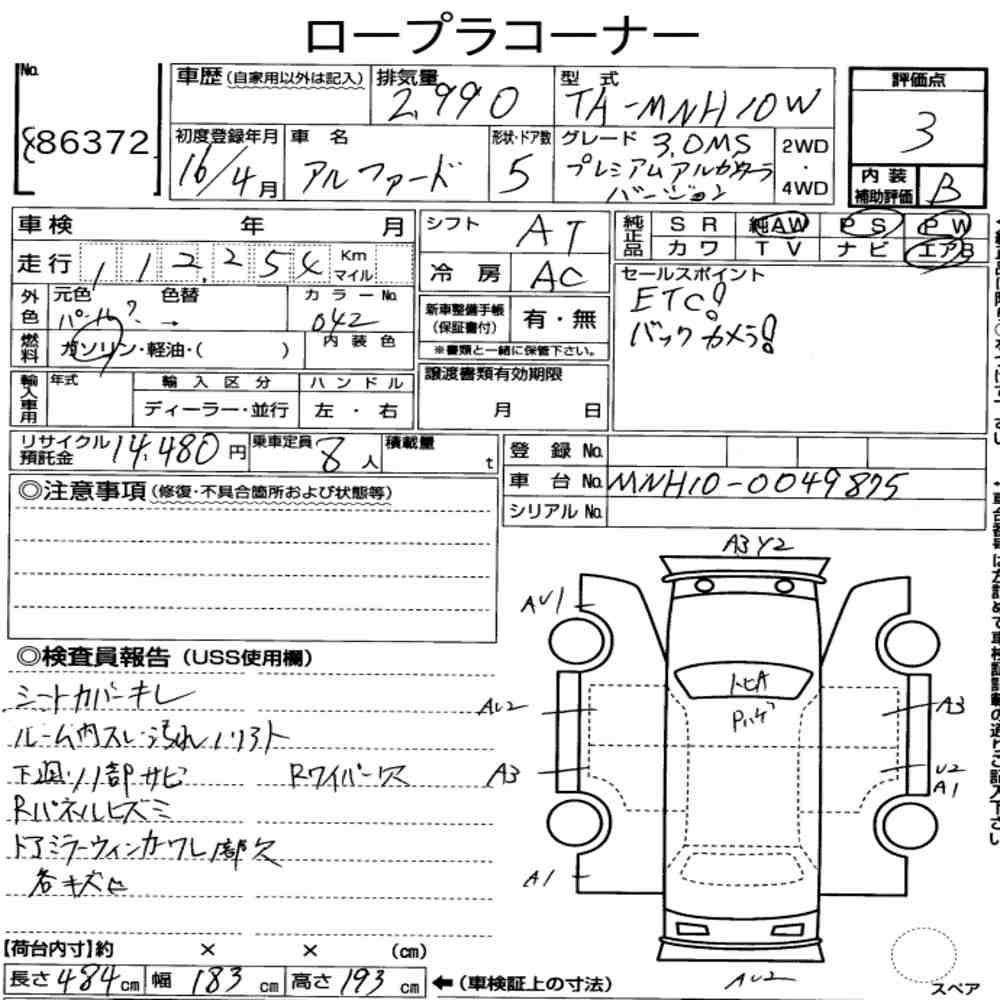 ロープラコーナー
No.
86372
車歴 (自家用以外は記入)
排気量
2,990
型式
TA-MNH10W
評価点
3
初度登録年月
16/4月
車名
アルファード
形状・ドア数
5
グレード 3.0MS
プレミアムアルカンターラ
バージョン
2WD
・
4WD
内装
補助評価
B
車検 年 月
走行 112,254 Km
マイル
シフト
AT
冷房
AC
純正品
SR 純AW PS PW
カワ TV ナビ エアB
外色
元色 色替
パール →
カラーNo.
042
新車整備手帳
(保証書付)
有・無
※書類と一緒に保管下さい。
セールスポイント
ETC!
バックカメラ!
燃料
ガソリン・軽油・( )
内装色
輸入車用
年式
輸入区分
ディーラー・並行
ハンドル
左・右
譲渡書類有効期限
月 日
リサイクル
預託金
14,480円
乗車定員
8人
積載量
t
登録No.
車台No. MNH10-0049875
シリアルNo.
◎注意事項 (修復・不具合箇所および状態等)
◎検査員報告 (USS使用欄)
シートカバーキレ
ルーム内スレ汚れ
下廻り1部サビ Rワイパー欠
Rパネルヒズミ
ドアミラーウィンカーワレ1部欠
各キズ凹
A3 Y2
AU1
トヒA
Pハゲ
AU2
A3
A3
U2
A1
A1
AU2
スペア
【荷台内寸】約 × × (cm)
長さ484cm 幅183cm 高さ193cm ←(車検証上の寸法)